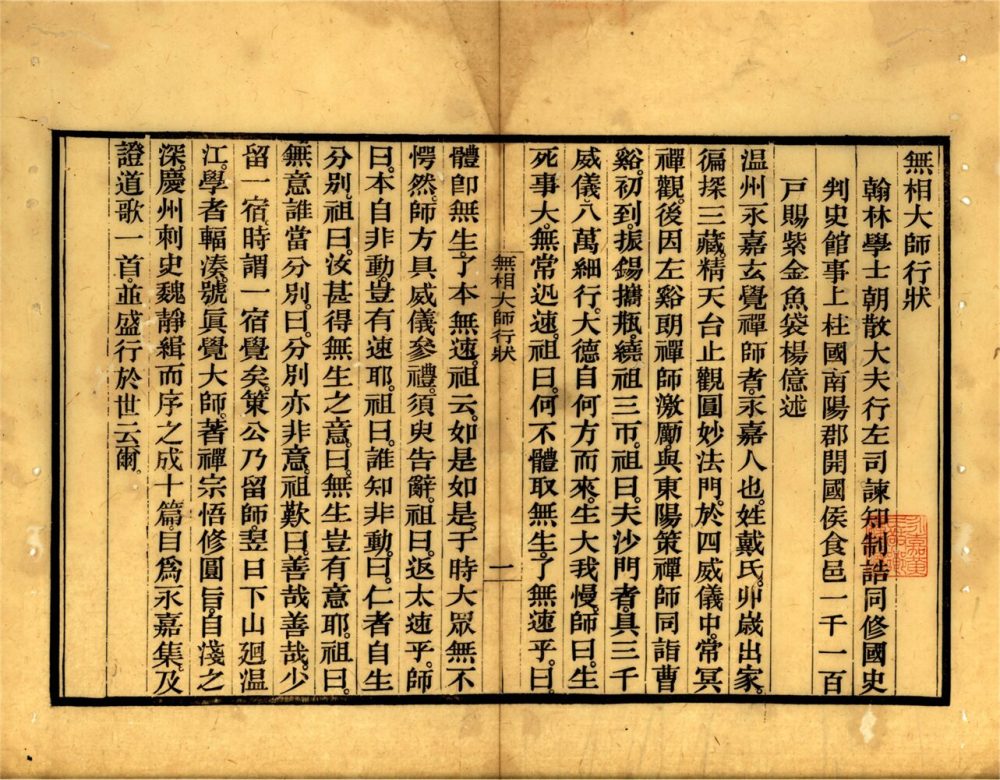 無相大師行狀
翰林學士朝散大夫行左司諫知制誥同修國史
判史館事上柱國南陽郡開國侯食邑一千一百
戸賜紫金魚袋楊億述
温州永嘉玄覺禪師者。永嘉人也。姓戴氏。卯嵗出家。
徧探三藏。精天台止觀圓妙法門。於四威儀中。常冥
禪觀。後因左谿朗禪師激勵。與東陽策禪師同詣曹
谿。初到。振錫攜瓶。繞祖三帀。祖曰。夫沙門者。具三千
威儀。八萬細行。大德自何方而來。生大我慢。師曰。生
死事大。無常迅速。祖曰。何不體取無生。了無速乎。曰。
無相大師行狀
一
體卽無生。了本無速。祖云。如是如是。于時大眾無不
愕然。師方具威儀參禮。須臾告辭。祖曰。返太速乎。師
曰。本自非動。豈有速耶。祖曰。誰知非動。曰。仁者自生
分別。祖曰。汝甚得無生之意。曰。無生豈有意耶。祖曰。
無意誰當分別。曰。分別亦非意。祖歎曰。善哉善哉。少
留一宿。時謂一宿覺矣。策公乃留師。翌日下山廻温
江。學者輻湊。號眞覺大師。著禪宗悟修圓旨。自淺之
深。慶州刺史魏靜緝而序之。成十篇。目爲永嘉集。及
證道歌一首。並盛行於世云爾。